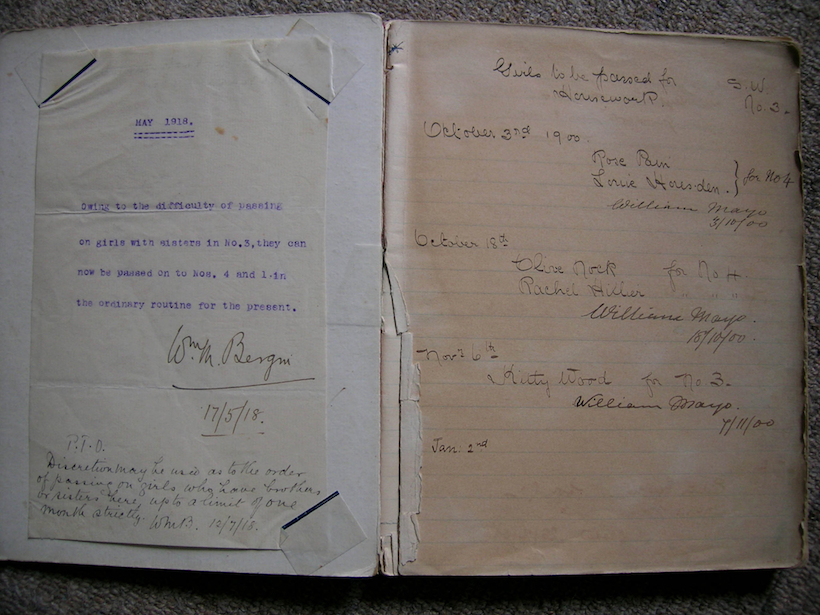 MAY 1918.
Owing to the difficulty of passing
on girls with sisters in No.3, they can
now be passed on to Nos. 4 and 1-in
the ordinary routine for the present.
Wm. M. Bergin
17/5/18.
P.T.O.
Discretion may be used as to the order
of passing on girls who have brothers
or sisters here, up to a limit of one
month strictly. WmB. 12/7/18.
Girls to be passed for
Housework.
S.W.
No. 3.
October 3rd 1900.
Rose Pain
Louie Housden. } for No 4
William Mayo
3/10/00
October 18th
Olive Nock for No 4.
Rachel Hiller " " "
William Mayo.
18/10/00.
Novr 6th
Kitty Wood for No 3.
William Mayo.
7/11/00
Jan. 2nd